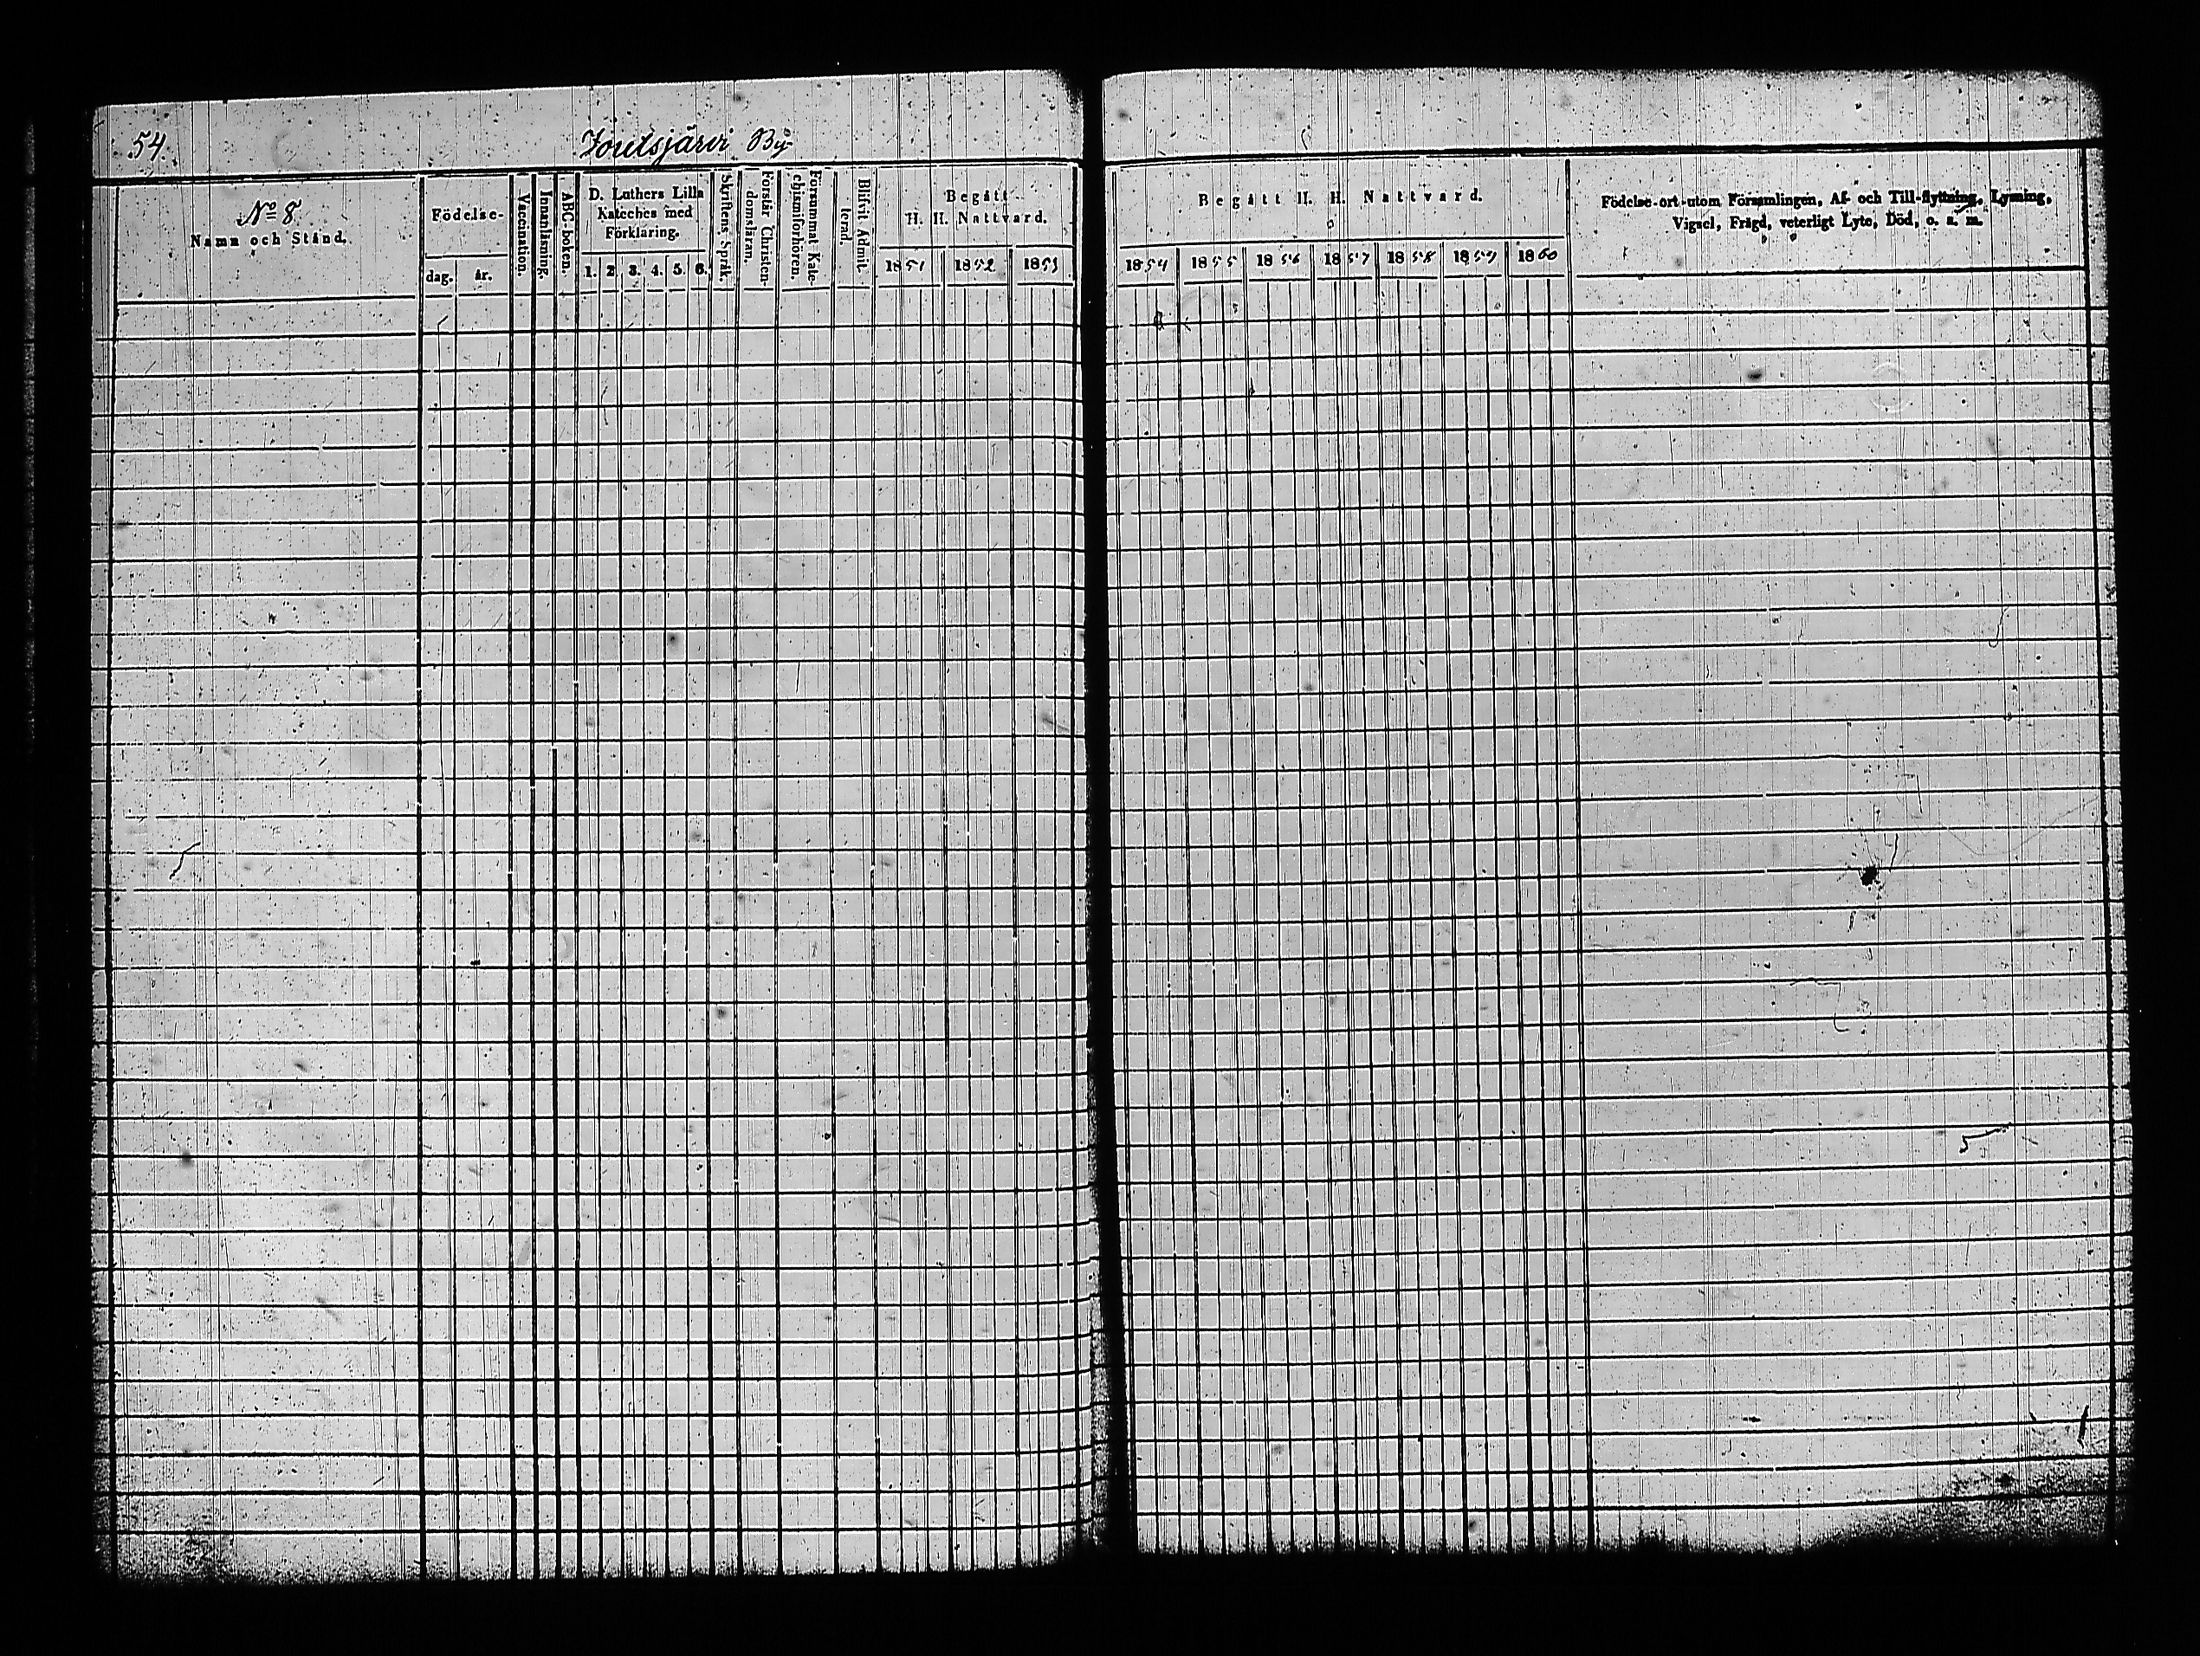 54.
Joutsjärvi By
No 8
Namn och Stånd.
Födelse-
dag. år.
Vaccination.
Innanläsning.
ABC-boken.
D. Luthers Lilla
Kateches med
Förklaring.
1. 2. 3. 4. 5. 6.
Skriftens Språk.
Förstår Christen-
domsläran.
Försummat Kate-
chismiförhören.
Blifvit Admit-
terad.
Begått
H. H. Nattvard.
1851 1852 1853
Begått H. H. Nattvard.
1854 1855 1856 1857 1858 1859 1860
Födelse-ort utom Församlingen, Af- och Till-flyttning, Lysning,
Vigsel, Frägd, veterligt Lyte, Död, o. a. m.